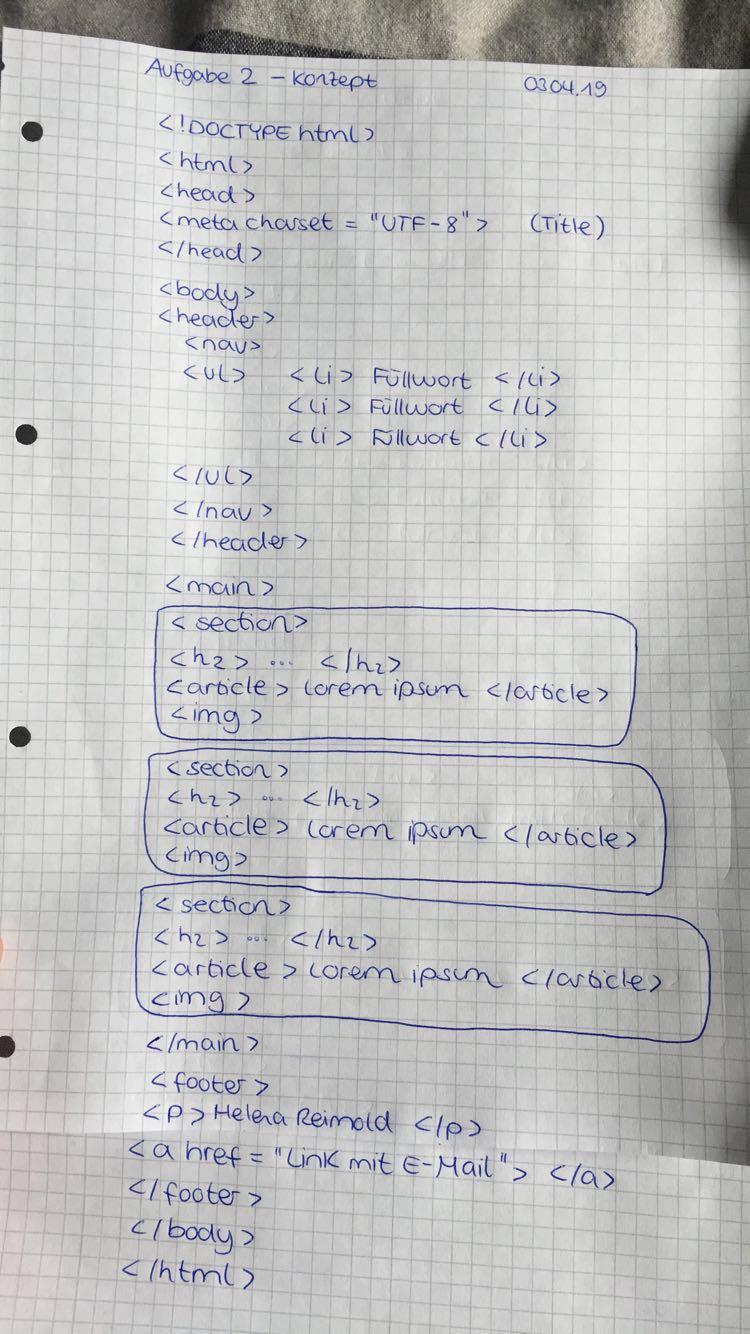 Aufgabe 2 - Konzept 0304.19
<!DOCTYPE html>
<html>
<head>
<meta charset = "UTF-8"> (Title)
</head>
<body>
<header>
<nav>
<ul> <li> Füllwort </li>
<li> Füllwort </li>
<li> Füllwort </li>
</ul>
</nav>
</header>
<main>
<section>
<h2> ... </h2>
<article> Lorem ipsum </article>
<img>
<section>
<h2> ... </h2>
<article> Lorem ipsum </article>
<img>
<section>
<h2> ... </h2>
<article> Lorem ipsum </article>
<img>
</main>
<footer>
<p> Helena Reimold </p>
<a href = "Link mit E-Mail"> </a>
</footer>
</body>
</html>